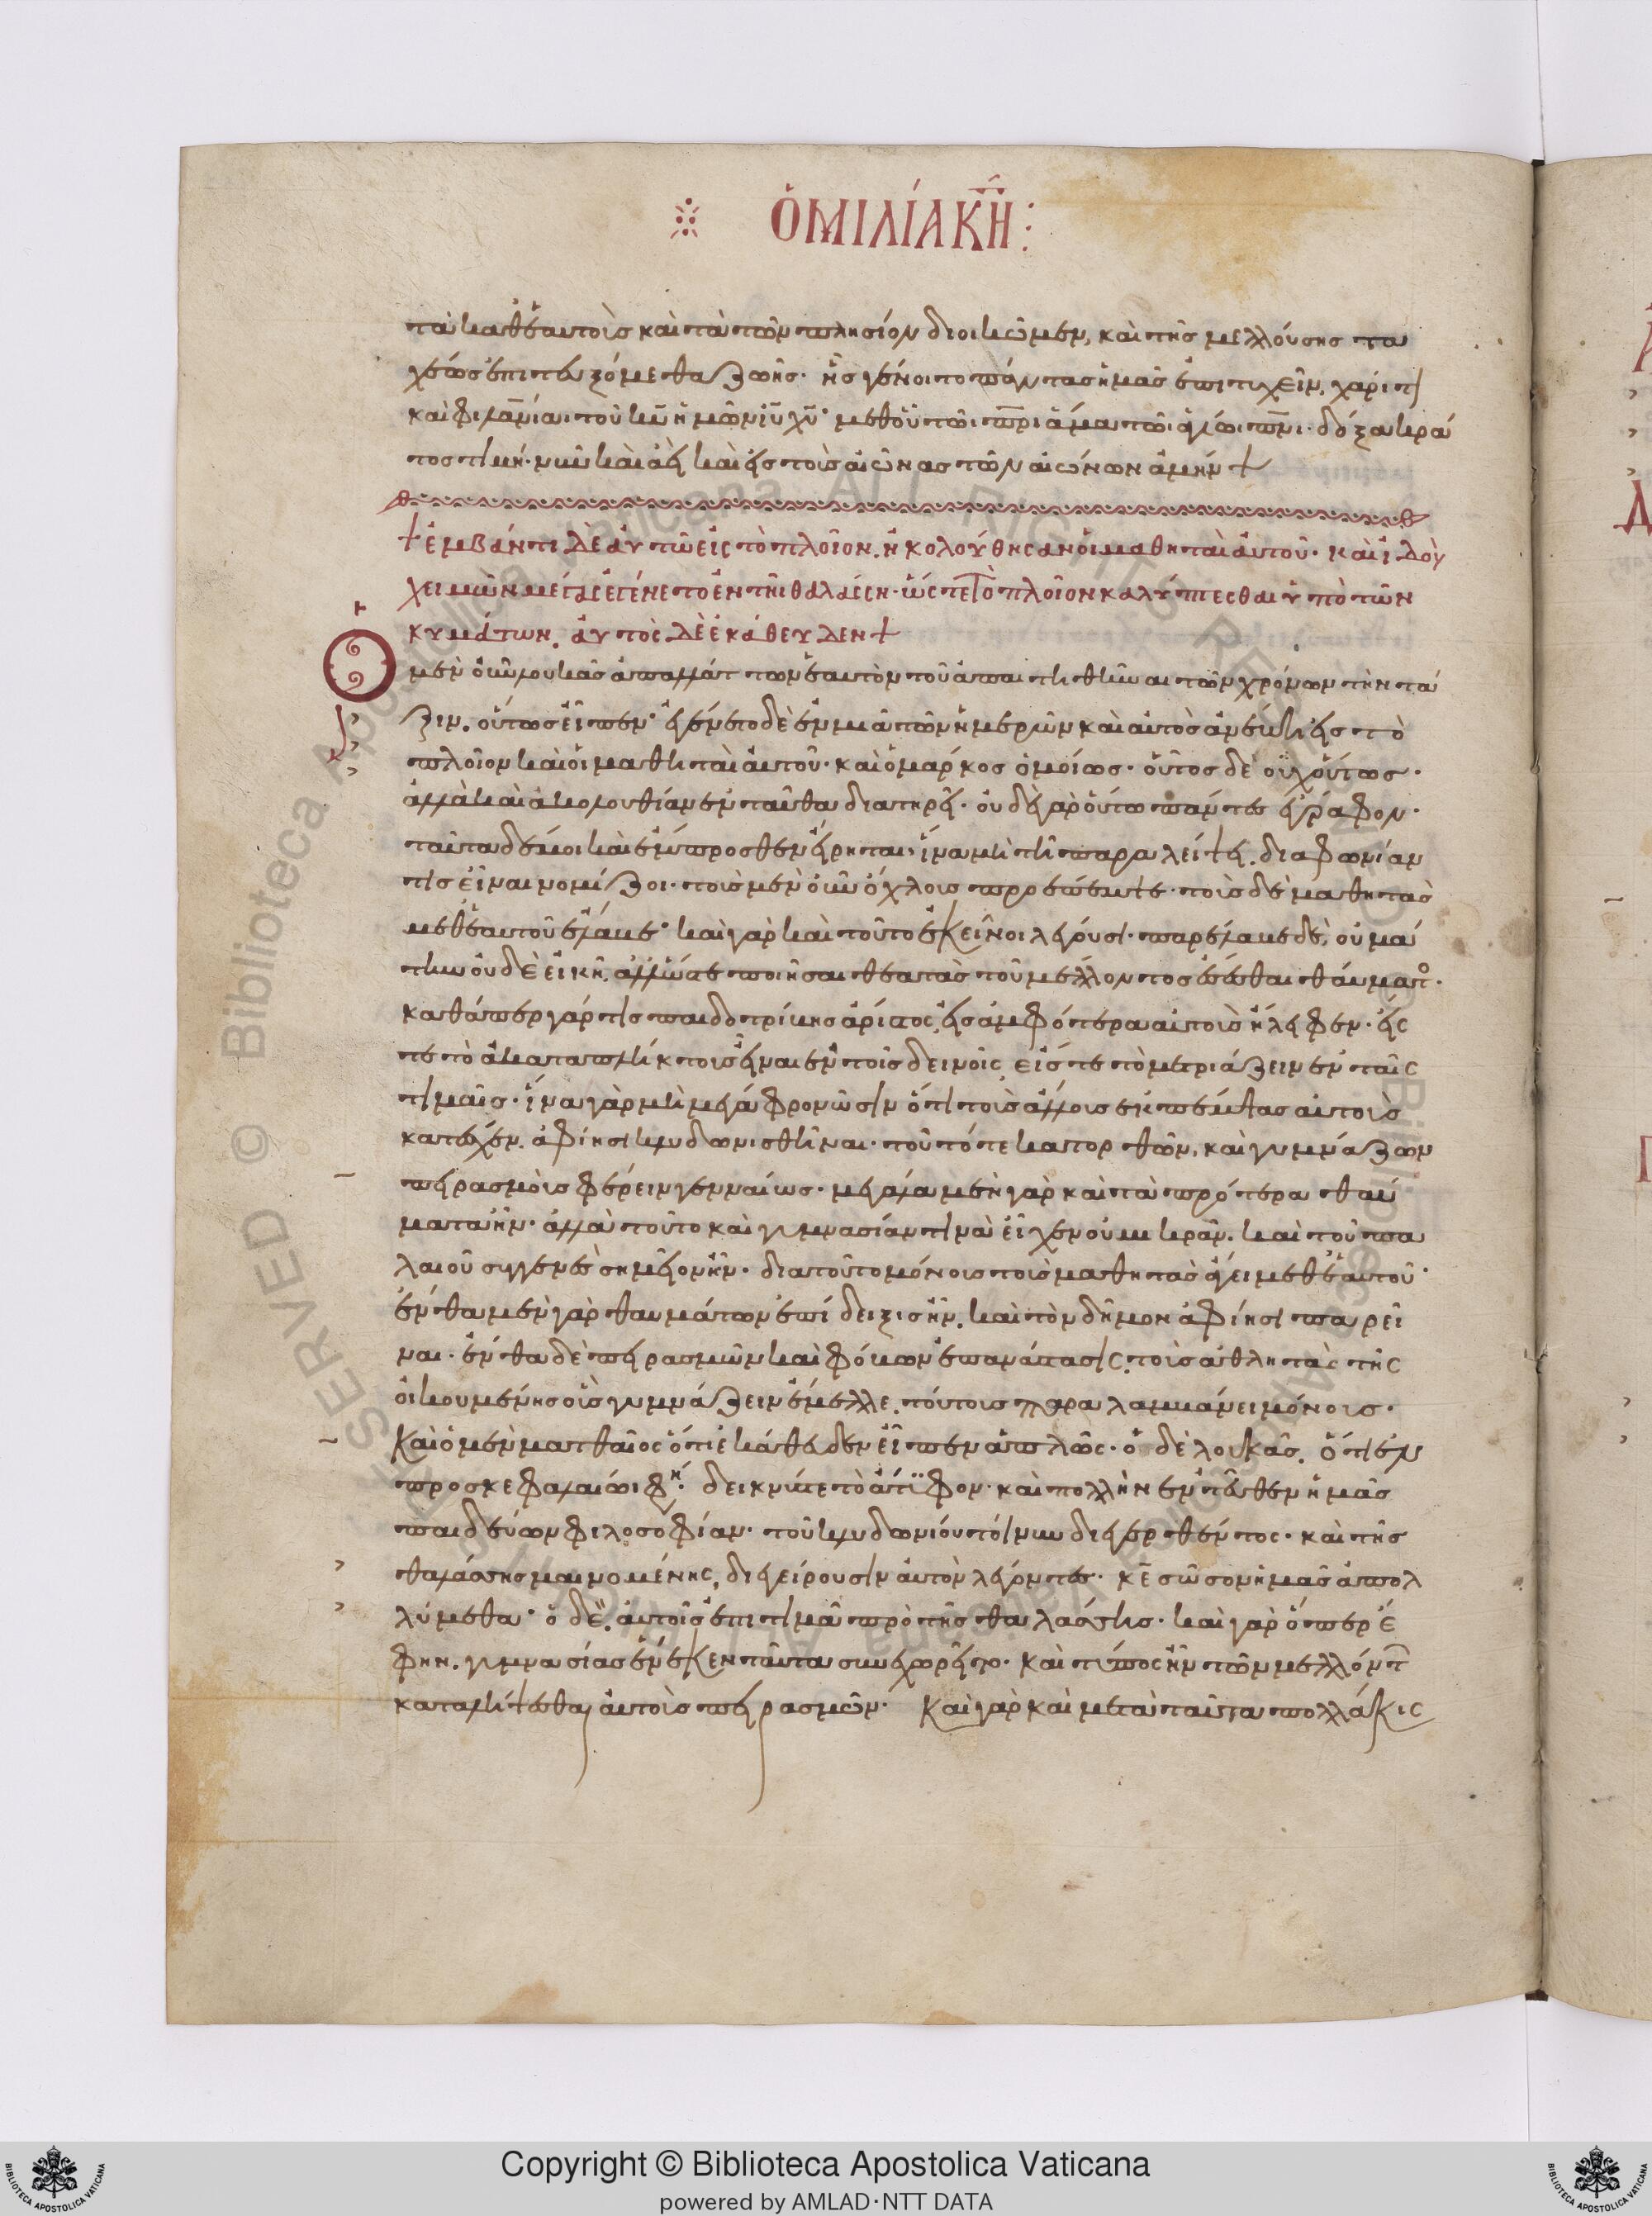 ὉΜΙΛΊΑ ΚΗ:
τὰ καθ ἑαυτοὺς καὶ τὰ τῶν πλησίον διοικῶμεν, καὶ τῆς μελλούσης τα
χέως ἐπιτευξόμεθα ζωῆς· ἧς γένοιτο πάντας ἡμᾶς ἐπιτυχεῖν, χάριτι
καὶ φιλανίαι τοῦ κυ ἡμῶν ιυ χυ· μεθ οὗ τῶι πρι ἅμα τῶι ἁγίωι πνι· δόξα κρά
τος τιμή· νῦν καὶ ἀεὶ καὶ εἰς τοὺς αἰῶνας τῶν αἰώνων ἀμήν +
+ ἐμβάντι δὲ αὐτῶ εἰς τὸ πλοῖον. ἠκολούθησαν οἱ μαθηταὶ αὐτοῦ· καὶ ἰδοὺ
χειμὼν μέγας ἐγένετο ἐν τῆι θαλάσση· ὥστε τὸ πλοῖον καλύπτεσθαι ὑπὸ τῶν
κυμάτων. αὐτὸς δὲ ἐκάθευδεν +
Ὁ μὲν οὖν λουκᾶς ἀπαλλάττων ἑαυτὸν τοῦ ἀπαιτηθῆναι τῶν χρόνων τὴν τά
ξιν. οὕτως εἶπεν· ἐγένετο δὲ ἐν μιᾶ τῶν ἡμερῶν καὶ αὐτὸς ἀνέβη εἰς τὸ
πλοῖον καὶ οἱ μαθηταὶ αὐτοῦ· καὶ ὁ μαρκος ὁμοίως· οὗτος δὲ οὐχ οὕτως·
ἀλλὰ καὶ ἀκολουθίαν ἐνταῦθα διατηρεῖ· οὐδὲ γὰρ οὕτω πάντες ἔγραφον·
ταῦτα δέ μοι καὶ ἔμπροσθεν εἴρηται· ἵνα μὴ τῆ παραλείψει. διαφωνίαν
τις εἶναι νομίζοι· τοὺς μὲν οὖν ὄχλους προέπεμψε· τοὺς δὲ μαθητὰς
μεθ ἑαυτοῦ ἔλαβε· καὶ γὰρ καὶ τοῦτο ἐκεῖνοι λέγουσι· παρέλαβε δὲ, οὐ μά
την οὐδὲ εἰκῆ. ἀλλ ὥστε ποιῆσαι θεατὰς τοῦ μέλλοντος ἔσεσθαι θαύματος·
καθάπερ γάρ τις παιδοτρίβης ἄριστος, εἰς ἀμφότερα αὐτοὺς ἤλειφεν· εἴς
τε τὸ ἀκαταπλήκτους εἶναι ἐν τοῖς δεινοῖς, εἴς τε τὸ μετριάζειν ἐν ταῖς
τιμαῖς· ἵνα γὰρ μὴ μέγα φρονῶσιν ὅτι τοὺς ἄλλους ἐκπέμψας αὐτοὺς
κατέσχεν. ἀφίησι κλυδωνισθῆναι· τοῦτό τε κατορθῶν, καὶ γυμνάζων
πειρασμοὺς φέρειν γενναίως· μεγάλα μὲν γὰρ καὶ τὰ πρότερα θαύ
ματα ἦν· ἀλλὰ τοῦτο καὶ γυμνασίαν τινὰ εἶχεν οὐ μικράν. καὶ τοῦ πα
λαιοῦ συγγενὲς σημεῖον ἦν· διατοῦτο μόνους τοὺς μαθητὰς ἄγει μεθ ἑαυτοῦ·
ἔνθα μὲν γὰρ θαυμάτων ἐπίδειξις ἦν. καὶ τὸν δῆμον ἀφίησι παρεῖ
ναι· ἔνθα δὲ πειρασμῶν καὶ φόβων ἐπανάστασις. τοὺς ἀθλητὰς τῆς
οἰκουμένης οὓς γυμνάζειν ἔμελλε, τούτους παραλαμβάνει μόνους·
Καὶ ὁ μὲν ματθαῖος ὅτι ἐκάθευδεν εἶπεν ἁπλῶς· ὁ δὲ λουκᾶς. ὅτι ἐν
προσκεφαλαίωι φη· δεικνύς τε τὸ ἄτυφον· καὶ πολλὴν ἐντεῦθεν ἡμᾶς
παιδεύων φιλοσοφίαν· τοῦ κλυδωνίου τοίνυν διεγερθέντος· καὶ τῆς
θαλάσσης μαινομένης, διεγείρουσιν αὐτὸν λέγοντες· κε σῶσον ἡμᾶς ἀπολ
λύμεθα· ὁ δὲ. αὐτοῖς ἐπιτιμᾶ πρὸ τῆς θαλάσσης· καὶ γὰρ ὅπερ ἔ
φην. γυμνασίας ἕνεκεν ταῦτα συνεχωρεῖτο· καὶ τύπος ἦν τῶν μελλόντ
καταλήψεσθαι αὐτοὺς πειρασμῶν· Καὶ γὰρ καὶ μετὰ ταῦτα πολλάκις
Copyright © Biblioteca Apostolica Vaticana
powered by AMLAD·NTT DATA